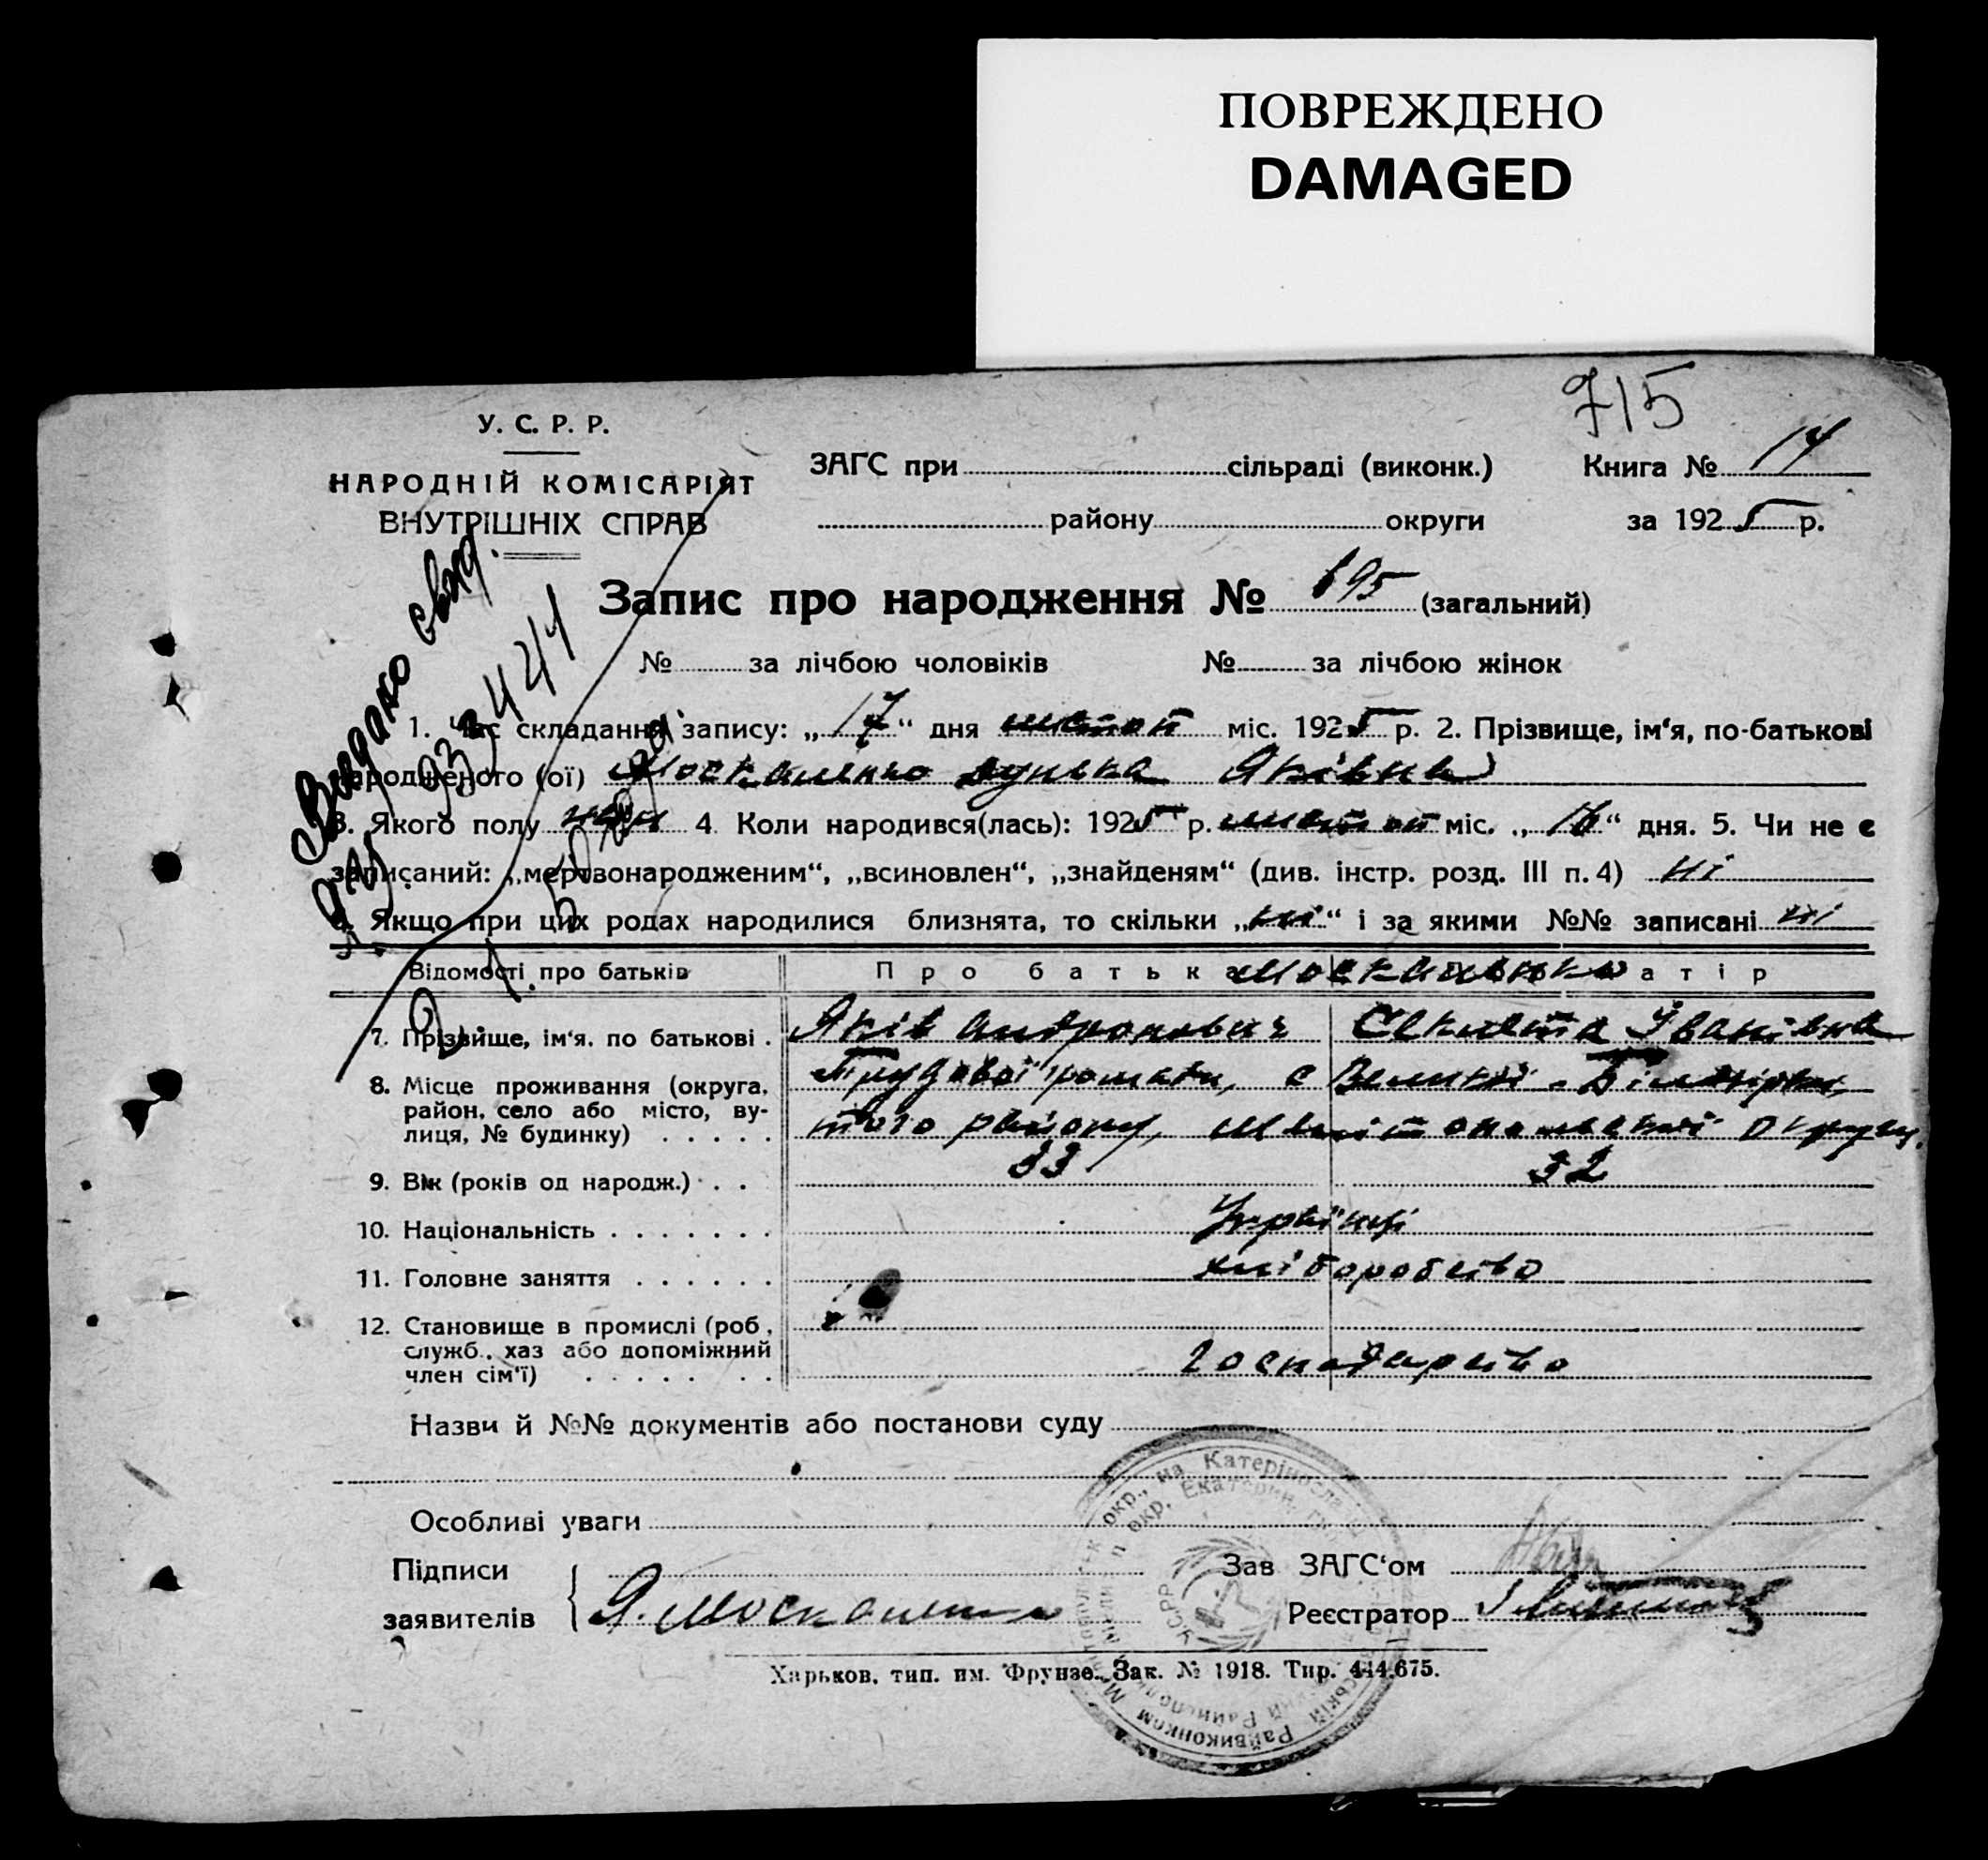 ПОВРЕЖДЕНО
DAMAGED
715
У. С. Р. Р.
НАРОДНІЙ КОМІСАРІЯТ
ВНУТРІШНІХ СПРАВ
ЗАГС при сільраді (виконк.) Книга № 14
району округи за 1925 р.
Запис про народження № 695 (загальний)
№ за лічбою чоловіків № за лічбою жінок
1. Час складання запису: „17“ дня листоп міс. 1925 р. 2. Прізвище, ім‘я, по-батькові
народженого (ої) Москаленко Яківна
3. Якого полу жін 4. Коли народився(лась): 1925 р. листоп міс. „16“ дня. 5. Чи не є
записаний: „мертвонародженим“, „всиновлен“, „знайденям“ (див. інстр. розд. III п. 4) ні
Якщо при цих родах народилися близнята, то скільки „ні“ і за якими №№ записані ні
Відомості про батьків Про батька Москаленко матір
7. Прізвище, ім‘я, по батькові . Яків Андронович Секлета Іванівна
8. Місце проживання (округа,
район, село або місто, ву-
лиця, № будинку) . . . . .
Трудової громади, с Великої-Білозірки,
того району, Мелітопольської округи.
9. Вік (років од народж.) . . 33 32
10. Національність . . . . . . . Українці
11. Головне заняття . . . . . . хліборобство
12. Становище в промислі (роб.,
служб., хаз або допоміжний
член сім‘ї) . . . . . . . господарство
Назви й №№ документів або постанови суду
Особливі уваги
Підписи
заявителів Я. Москаленко
Зав ЗАГС‘ом
Реєстратор
Харьков, тип. им. Фрунзе. Зак. № 1918. Тир. 444.675.
Видано свид.
окр., на Катеріносла
окр. Екатерин. губ.
УСРР
Райвиконком